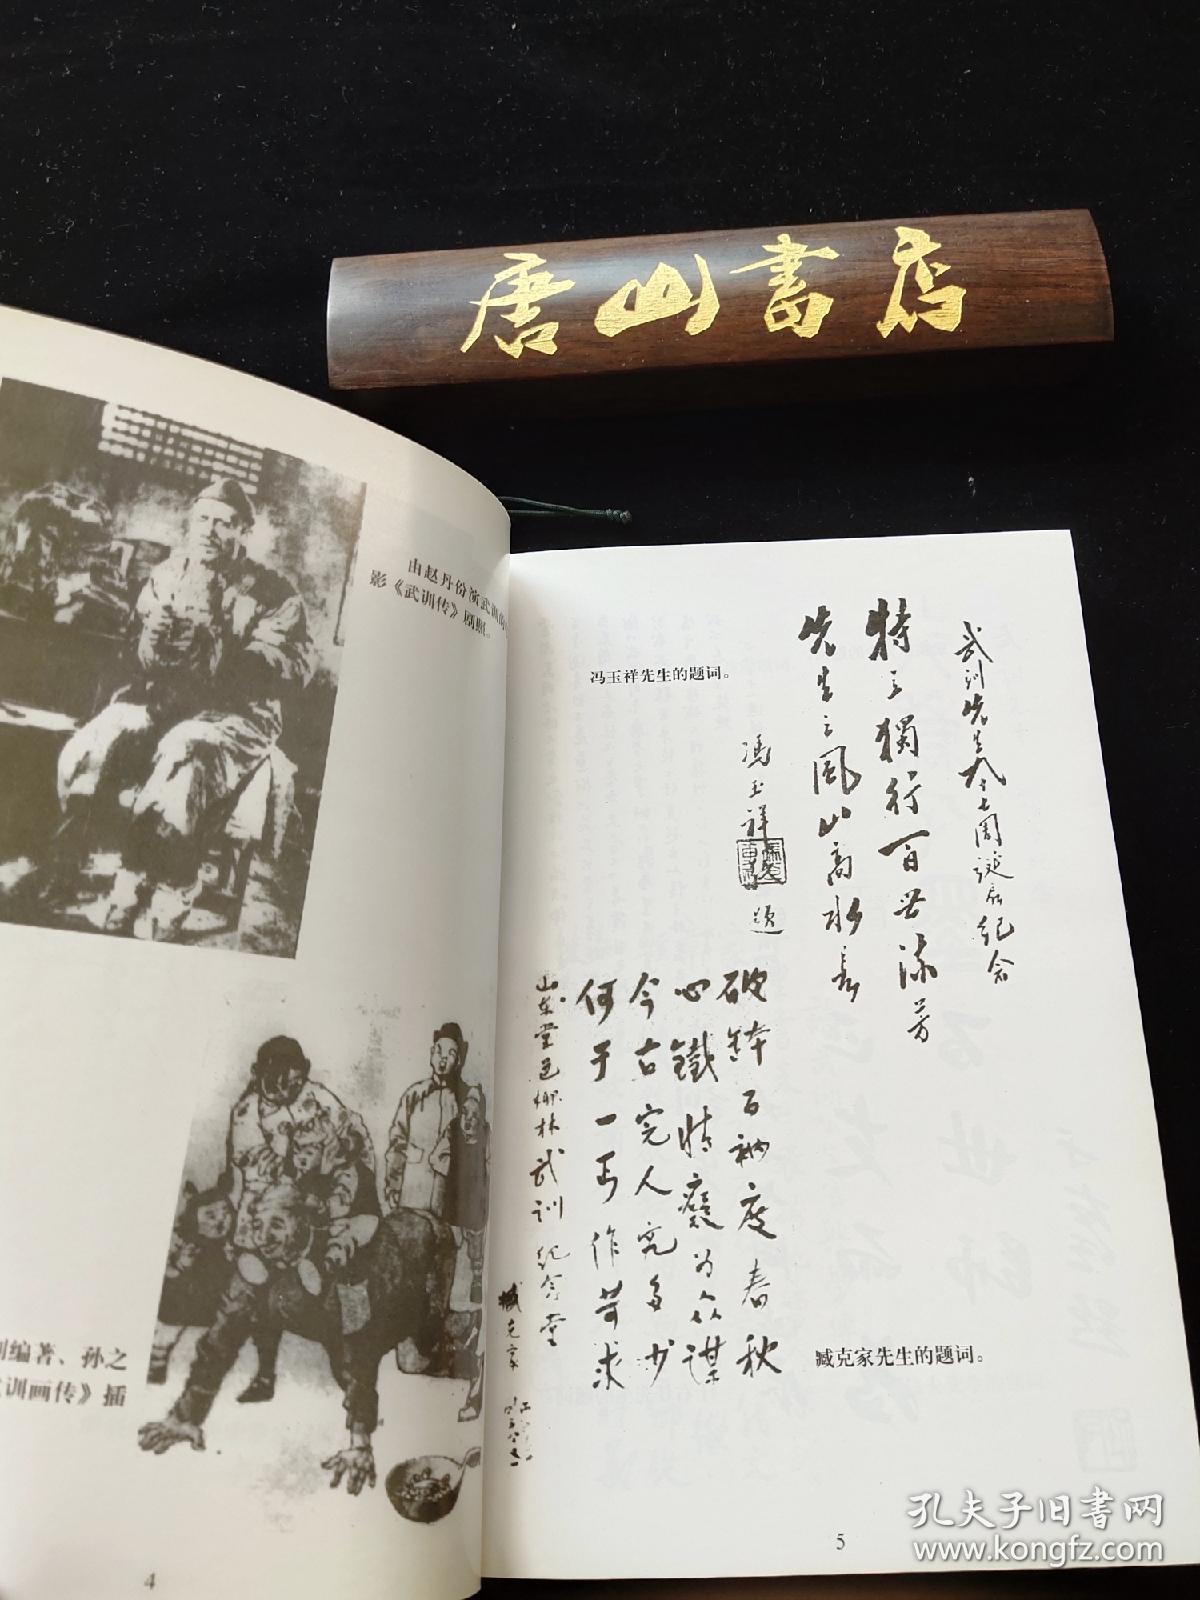 唐山書店
由赵丹份演武训的
影《武训传》剧照。
编著、孙之
训画传》插
4
冯玉祥先生的题词。
武训先生
周诞辰纪念
特立獨行百世流芳
先生之風山高水長
冯玉祥
题
破钵百衲度春秋
心鐵情癡为众谋
今古完人究多少
何于一丐作苛求
山东堂邑柳林武训纪念堂
臧克家
臧克家先生的题词。
5
孔夫子旧书网
www.kongfz.com